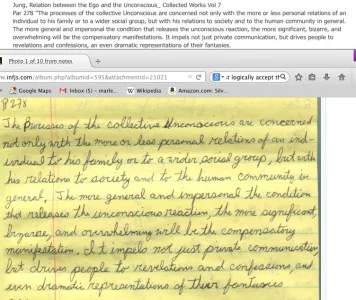 Jung, Relation between the Ego and the Unconscious, Collected Works Vol 7
Par 278 "The processes of the collective Unconscious are concerned not only with the more or less personal relations of an
individual to his family or to a wider social group, but with his relations to society and to the human community in general.
The more general and impersonal the condition that releases the unconscious reaction, the more significant, bizarre, and
overwhelming will be the compensatory manifestations. It impels not just private communication, but drives people to
revelations and confessions, an even dramatic representations of their fantasies.
Photo 1 of 10 from notes
w.infjs.com/album.php?albumid=595&attachmentid=21021
it logically accept th
Google Maps Inbox (5) – Wikipedia Amazon.com: Silv...
P 278
The Processes of the collective Unconscious are concerned
not only with the more or less personal relations of an ind-
ividual to his family or to a wider social group, but with
his relations to society and to the human community in
general. The more general and impersonal the condition
that releases the unconscious reaction, the more significant,
bizarre, and overwhelming will be the compensatory
manifestation. It impels not just private communication,
but drives people to revelations and confessions, and
even dramatic representations of their fantasies.